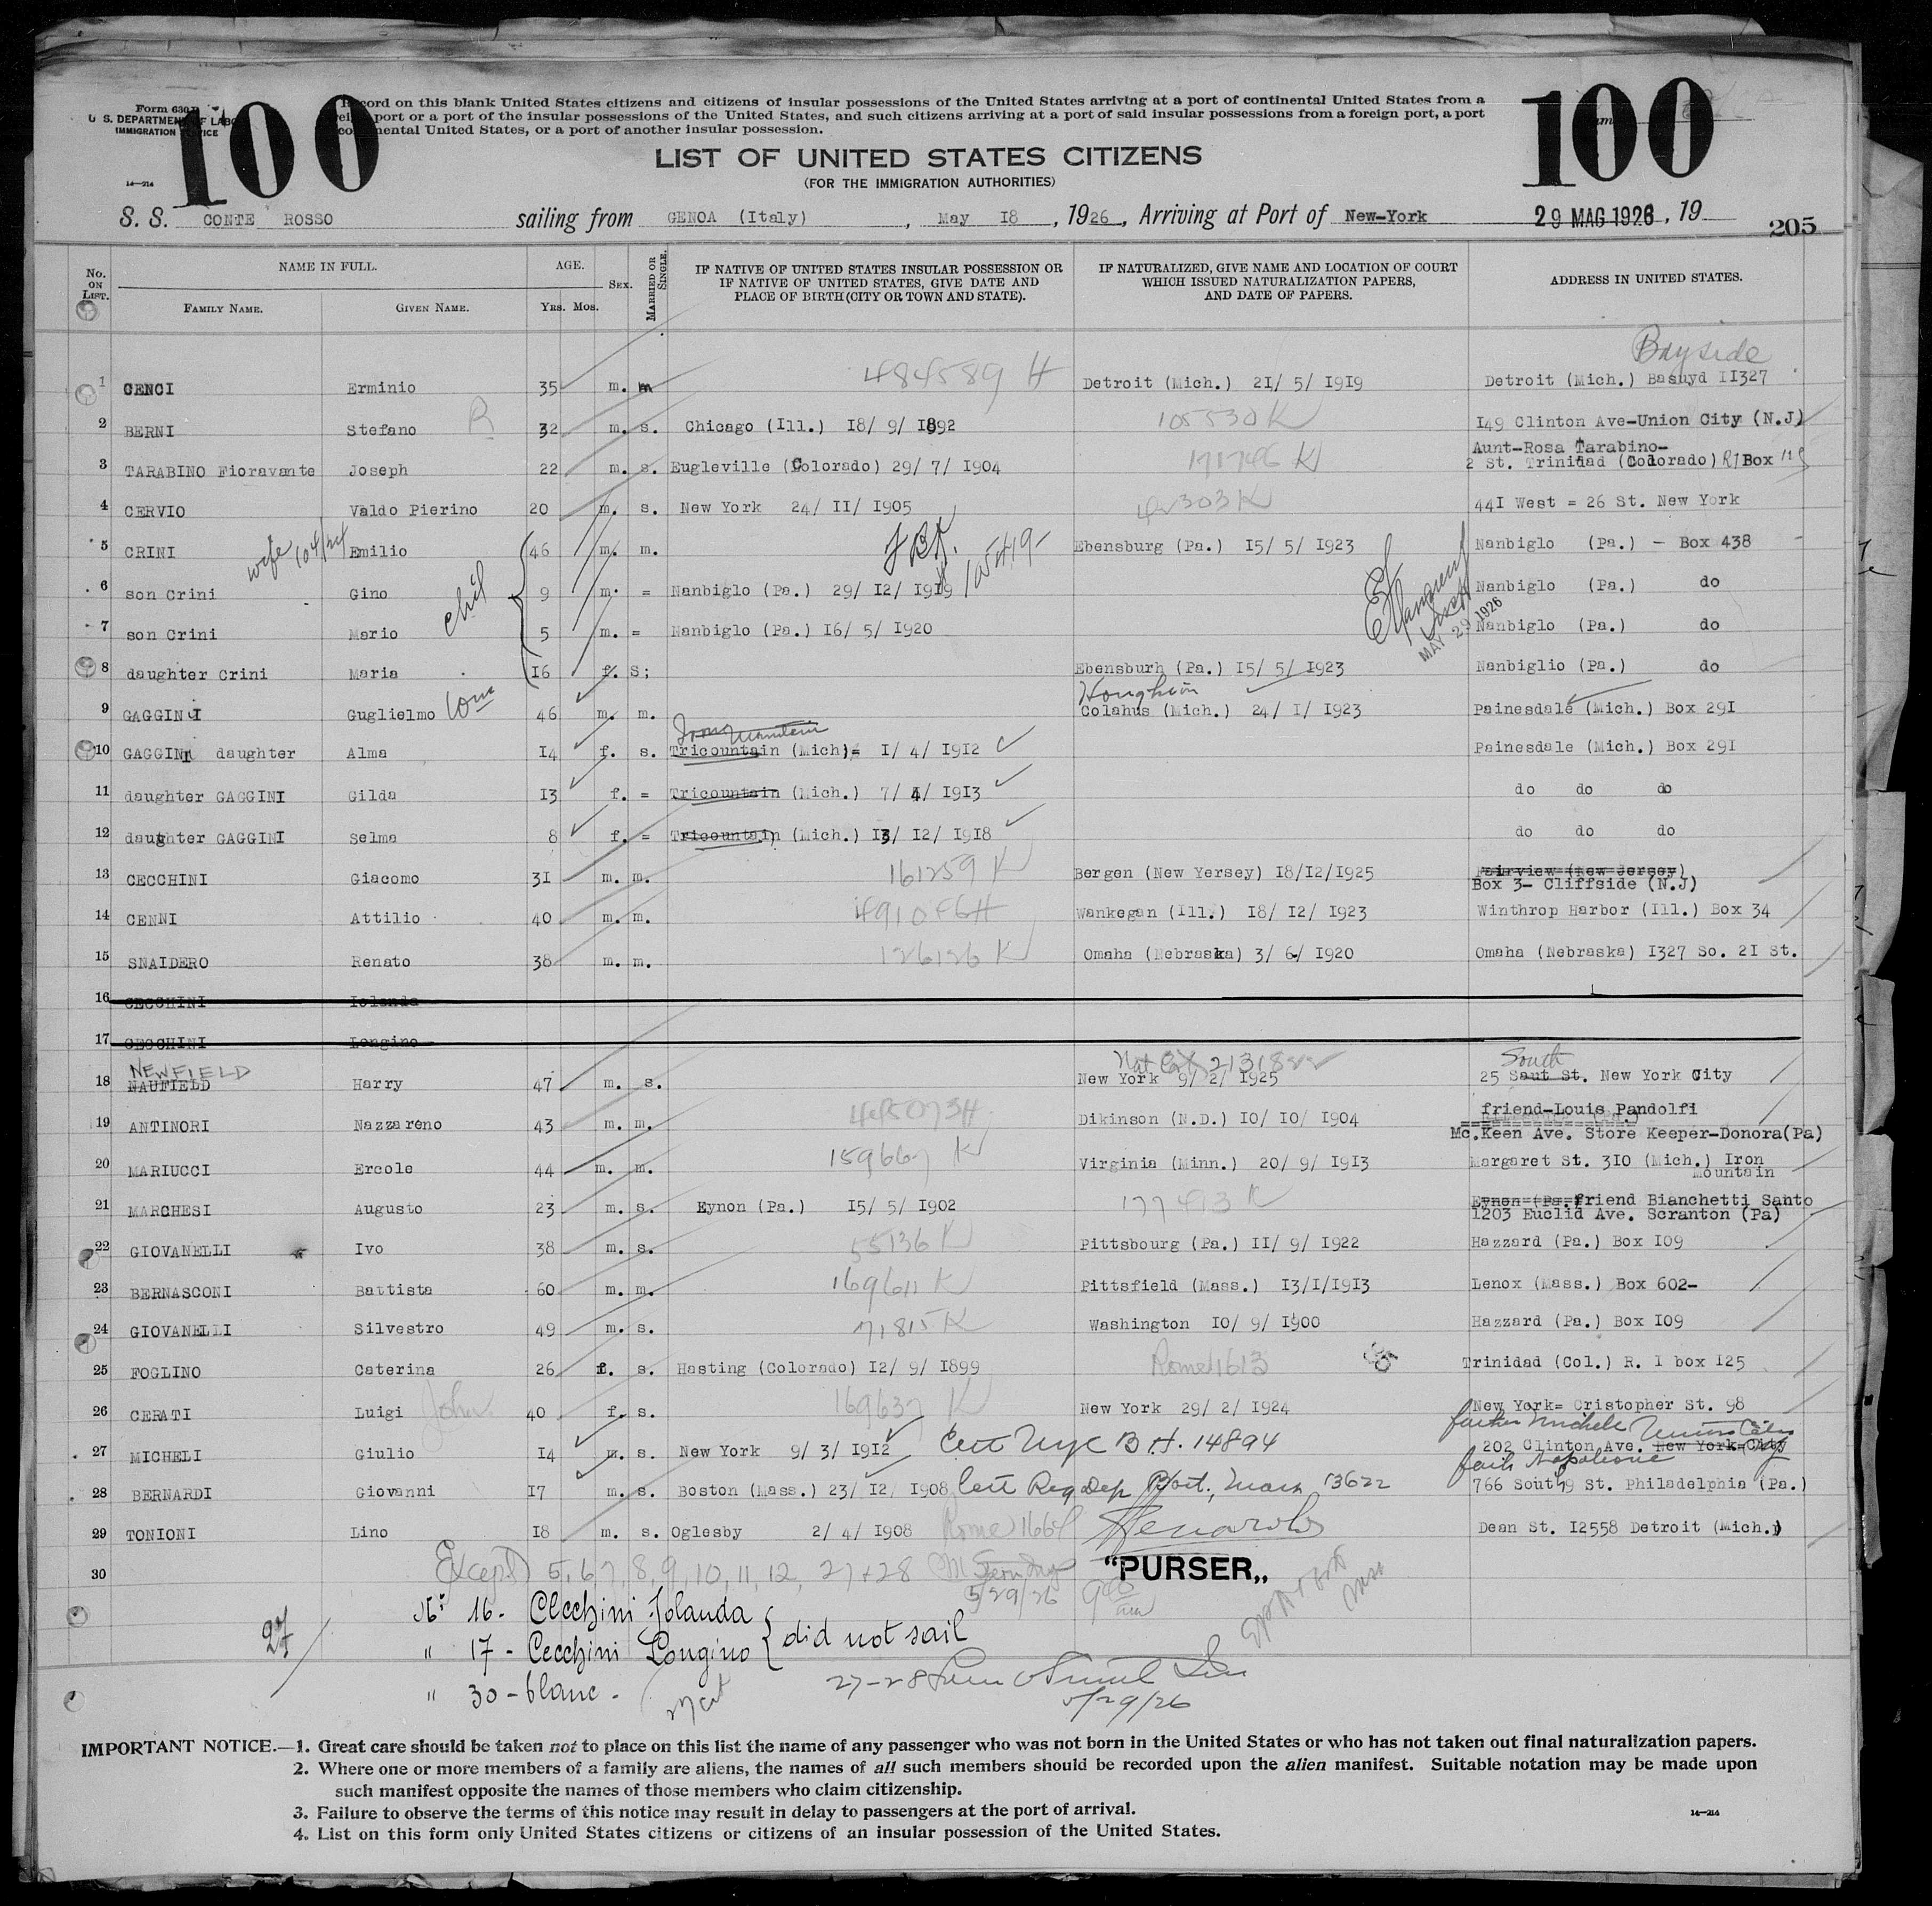 Form 630
U. S. DEPARTMENT OF LABOR
IMMIGRATION SERVICE
14—214
100
Record on this blank United States citizens and citizens of insular possessions of the United States arriving at a port of continental United States from a
port or a port of the insular possessions of the United States, and such citizens arriving at a port of said insular possessions from a foreign port, a port
continental United States, or a port of another insular possession.
100
LIST OF UNITED STATES CITIZENS
(FOR THE IMMIGRATION AUTHORITIES)
S. S. CONTE ROSSO sailing from GENOA (Italy), May I8, 1926, Arriving at Port of New-York 29 MAG 1926, 19
205
No. ON LIST. NAME IN FULL. FAMILY NAME. GIVEN NAME. AGE. YRS. MOS. SEX. MARRIED OR SINGLE. IF NATIVE OF UNITED STATES INSULAR POSSESSION OR IF NATIVE OF UNITED STATES, GIVE DATE AND PLACE OF BIRTH (CITY OR TOWN AND STATE). IF NATURALIZED, GIVE NAME AND LOCATION OF COURT WHICH ISSUED NATURALIZATION PAPERS, AND DATE OF PAPERS. ADDRESS IN UNITED STATES.
Bayside
1 CENCI Erminio 35 m. m 484589 H Detroit (Mich.) 2I/ 5/ I9I9 Detroit (Mich.) Basuyd II327
2 BERNI Stefano R 32 m. s. Chicago (Ill.) I8/ 9/ I892 105530 K I49 Clinton Ave-Union City (N.J)
Aunt-Rosa Tarabino-
3 TARABINO Fioravante Joseph 22 m. s. Eugleville (Colorado) 29/ 7/ I904 171746 K 2 St. Trinidad (Colorado) R1 Box 119
4 CERVIO Valdo Pierino 20 m. s. New York 24/ II/ I905 42303 K 44I West = 26 St. New York
5 CRINI wife Emilio 46 m. m. 105419- Ebensburg (Pa.) I5/ 5/ I923 Nanbiglo (Pa.) - Box 438
6 son Crini Gino 9 m. = Nanbiglo (Pa.) 29/ I2/ I9I9 Nanbiglo (Pa.) do
7 son Crini Mario 5 m. = Nanbiglo (Pa.) I6/ 5/ I920 MAY 29 1926 Nanbiglo (Pa.) do
8 daughter Crini Maria I6 f. S; Ebensburh (Pa.) I5/ 5/ I923 Nanbiglio (Pa.) do
Houghton
9 GAGGINI Guglielmo 46 m. m. Colahus (Mich.) 24/ I/ I923 Painesdale (Mich.) Box 29I
Iron Mountain
10 GAGGINI daughter Alma I4 f. s. Tricountain (Mich)= I/ 4/ I9I2 Painesdale (Mich.) Box 29I
11 daughter GAGGINI Gilda I3 f. = Tricountain (Mich.) 7/ 4/ I9I3 do do do
12 daughter GAGGINI Selma 8 f. = Tricountain (Mich.) I3/ I2/ I9I8 do do do
13 CECCHINI Giacomo 3I m. m. 161259 K Bergen (New Yersey) I8/I2/I925 Fairview (New Jersey)
Box 3- Cliffside (N.J)
14 CENNI Attilio 40 m. m. Wankegan (Ill.) I8/ I2/ I923 Winthrop Harbor (Ill.) Box 34
15 SNAIDERO Renato 38 m. m. 126126 K Omaha (Nebraska) 3/ 6/ I920 Omaha (Nebraska) I327 So. 2I St.
16 CECCHINI Iolanda
17 CECCHINI Longino
NEWFIELD South
18 NAUFIELD Harry 47 m. s. New York 9/ 2/ I925 25 Saut St. New York City
friend-Louis Pandolfi
19 ANTINORI Nazzareno 43 m. m. Dikinson (N.D.) IO/ IO/ I904 Mc.Keen Ave. Store Keeper-Donora(Pa)
20 MARIUCCI Ercole 44 m. m. 159667 K Virginia (Minn.) 20/ 9/ I9I3 Margaret St. 3IO (Mich.) Iron
Mountain
21 MARCHESI Augusto 23 m. s. Eynon (Pa.) I5/ 5/ I902 177413 K Eynon (Pa. friend Bianchetti Santo
I203 Euclid Ave. Scranton (Pa)
22 GIOVANELLI Ivo 38 m. s. 55136 K Pittsbourg (Pa.) II/ 9/ I922 Hazzard (Pa.) Box I09
23 BERNASCONI Battista 60 m. m. 169611 K Pittsfield (Mass.) I3/I/I9I3 Lenox (Mass.) Box 602-
24 GIOVANELLI Silvestro 49 m. s. 71815 K Washington IO/ 9/ I900 Hazzard (Pa.) Box I09
25 FOGLINO Caterina 26 f. s. Hasting (Colorado) I2/ 9/ I899 Rome 1613 Trinidad (Col.) R. I box I25
26 CERATI Luigi John 40 f. s. 169637 K New York 29/ 2/ I924 New York= Cristopher St. 98
father Michele Union City
27 MICHELI Giulio I4 m. s. New York 9/ 3/ I9I2 Cert Nyc B.H. 14894 202 Clinton Ave. New York-City
fath Napoleone
28 BERNARDI Giovanni I7 m. s. Boston (Mass.) 23/ I2/ I908 Cert Reg Dep Bost., Mass 13622 766 South 9 St. Philadelphia (Pa.)
29 TONIONI Lino I8 m. s. Oglesby 2/ 4/ I908 Rome Dean St. I2558 Detroit (Mich.)
30 Except 5, 6, 7, 8, 9, 10, 11, 12, 27 + 28 5/29/26 "PURSER„
N° 16 - Cecchini Iolanda
" 17 - Cecchini Longino } did not sail
" 30 - blanc.
27
27-28
5/29/26
IMPORTANT NOTICE.—1. Great care should be taken not to place on this list the name of any passenger who was not born in the United States or who has not taken out final naturalization papers.
2. Where one or more members of a family are aliens, the names of all such members should be recorded upon the alien manifest. Suitable notation may be made upon
such manifest opposite the names of those members who claim citizenship.
3. Failure to observe the terms of this notice may result in delay to passengers at the port of arrival.
14—214
4. List on this form only United States citizens or citizens of an insular possession of the United States.